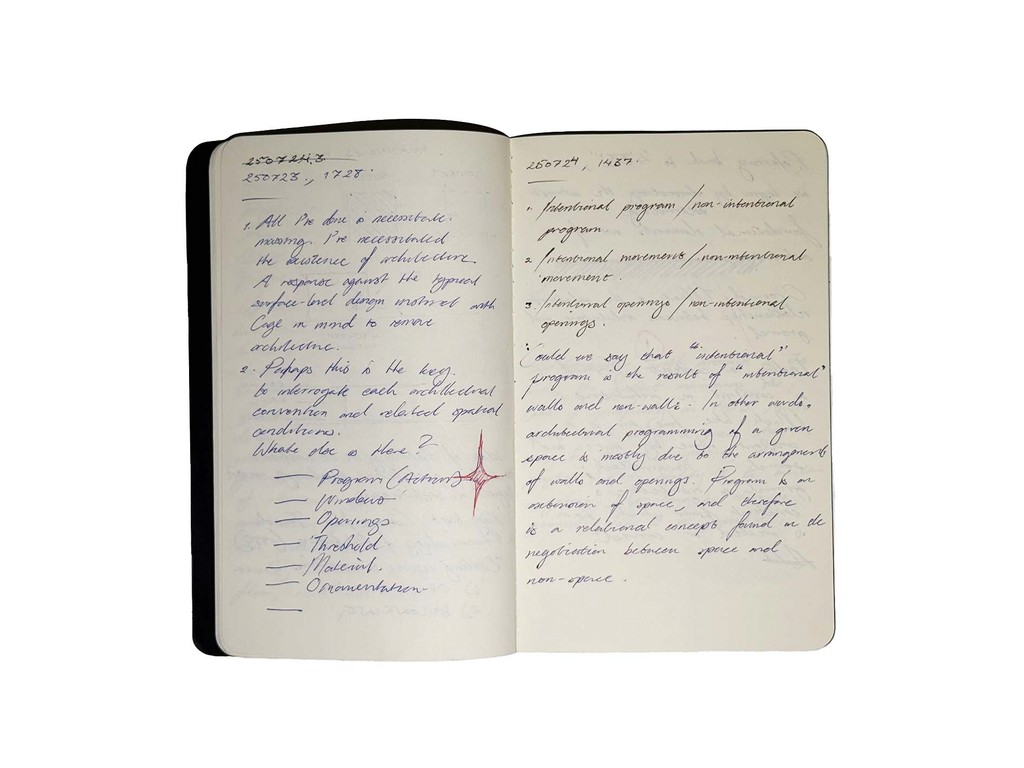 250724.3
250723., 1728.
1. All I've done is necessitate.
massing. I've necessitated
the existence of architecture.
A response against the typical
surface-level design instinct with
Cage in mind to remove
architecture.
2. Perhaps this is the key.
to interrogate each architectural
convention and related spatial
conditions.
What else is there?
— Program (Action)
— Windows
— Openings
— Threshold
— Material.
— Ornamentation
—
250724, 1437.
1. Intentional program / non-intentional
program
2. Intentional movements / non-intentional
movement.
3. Intentional openings / non-intentional
openings.
Could we say that "intentional"
program is the result of "intentional"
walls and non-walls. In other words,
architectural programming of a given
space is mostly due to the arrangements
of walls and openings. Program is an
extension of space, and therefore
is a relational concept found in the
negotiation between space and
non-space.